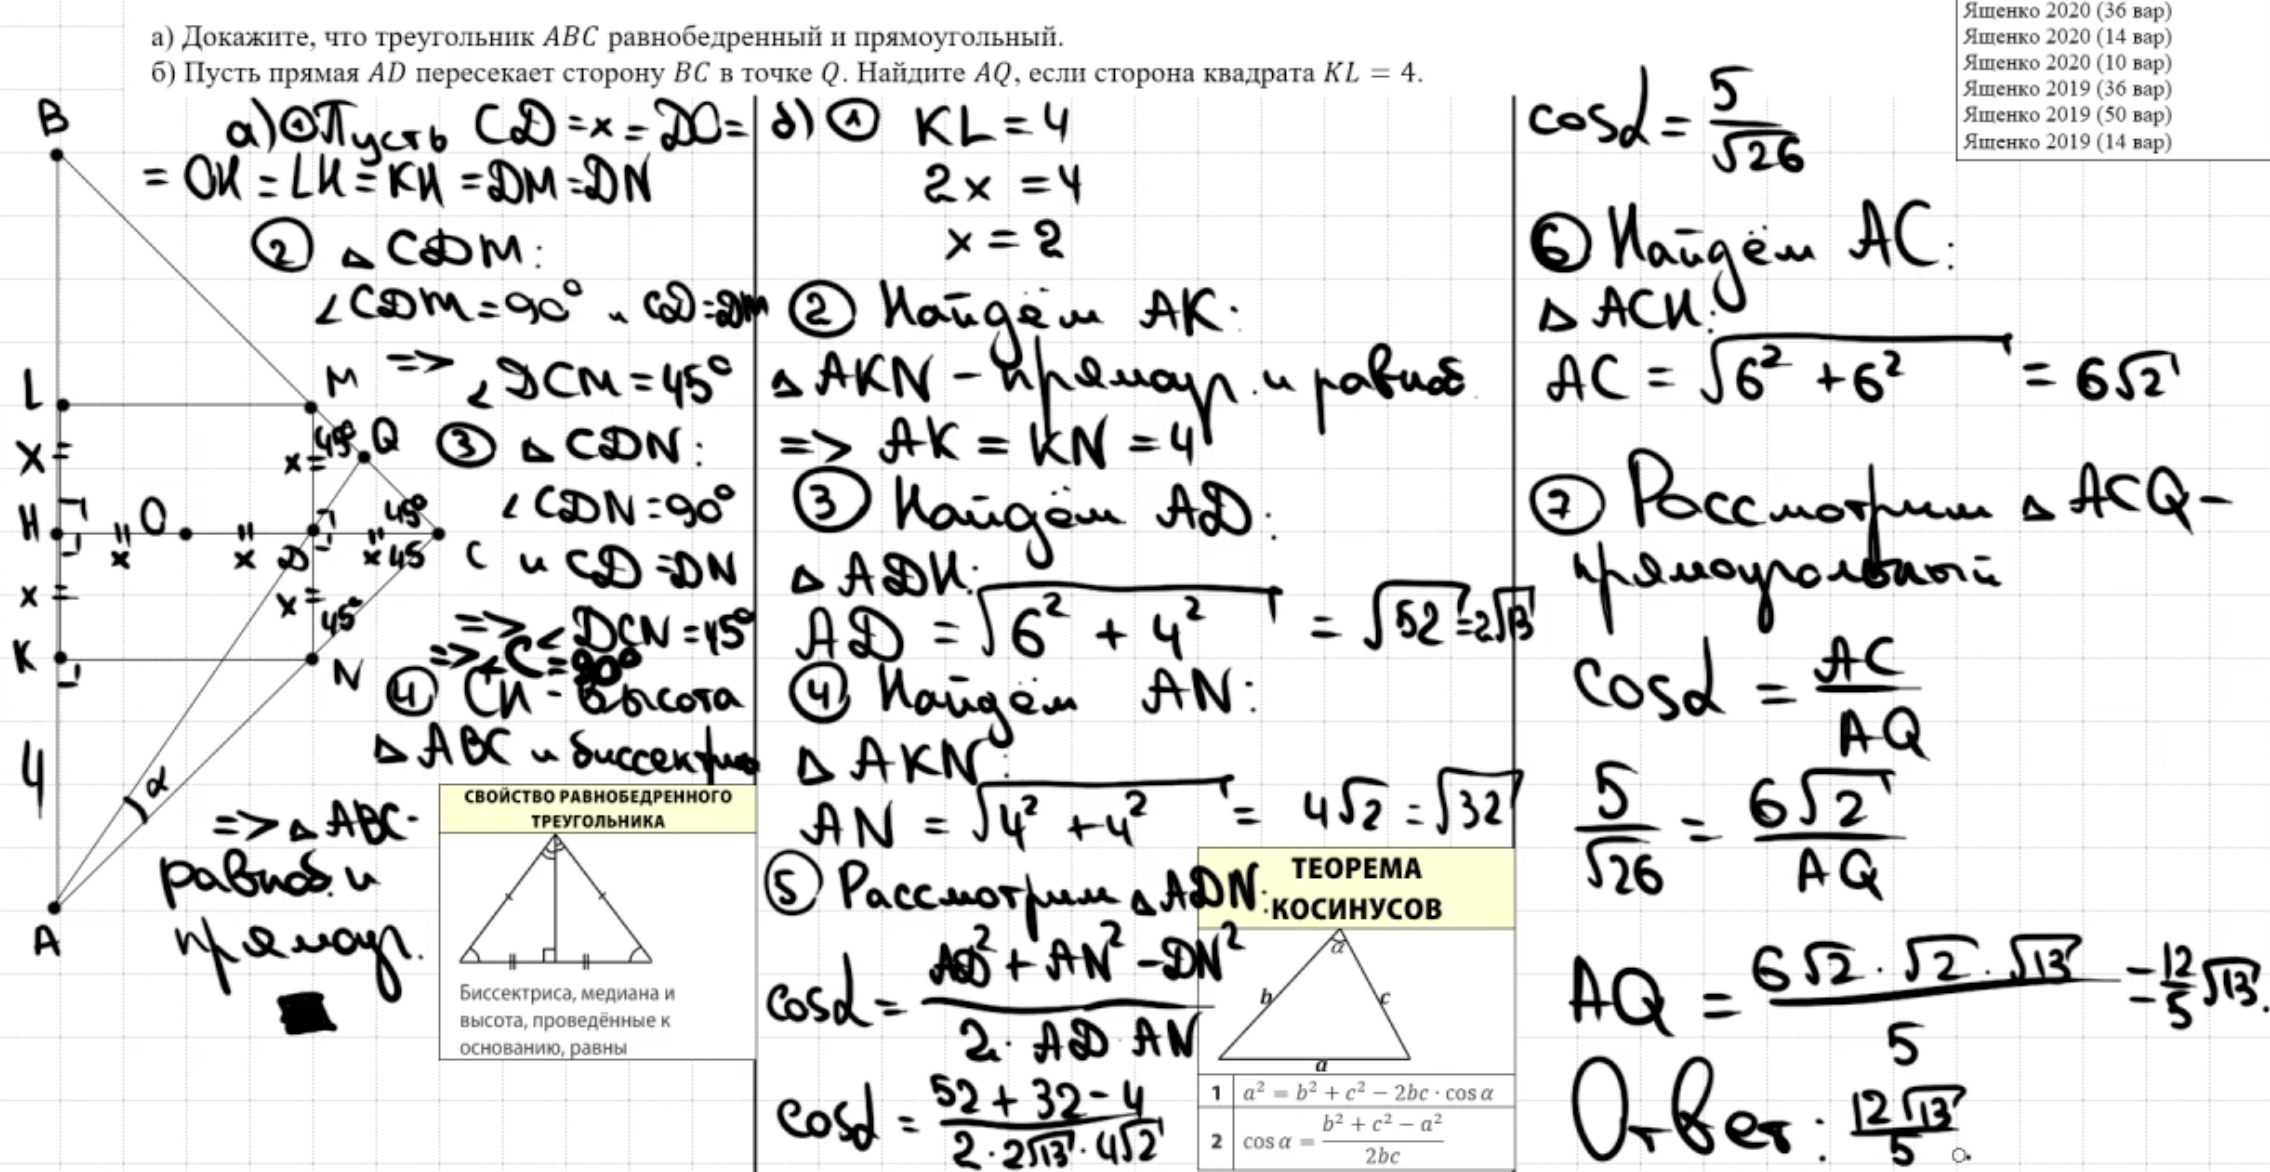 а) Докажите, что треугольник ABC равнобедренный и прямоугольный.
б) Пусть прямая AD пересекает сторону BC в точке Q. Найдите AQ, если сторона квадрата KL = 4.
Ященко 2020 (36 вар)
Ященко 2020 (14 вар)
Ященко 2020 (10 вар)
Ященко 2019 (36 вар)
Ященко 2019 (50 вар)
Ященко 2019 (14 вар)
B
L
M
Q
45°
X
x
H
O
D
C
45°
x
x
x 45
x
x
45°
K
N
4
α
A
а) ① Пусть CD = x = DO =
= OH = LH = KH = DM = DN
② △ CDM:
∠CDM = 90° и CD = DM
=> ∠DCM = 45°
③ △ CDN:
∠CDN = 90°
и CD = DN
=> ∠DCN = 45°
=> ∠C = 90°
④ CH - высота
△ ABC и биссектриса
=> △ ABC -
равноб. и
прямоуг.
СВОЙСТВО РАВНОБЕДРЕННОГО
ТРЕУГОЛЬНИКА
Биссектриса, медиана и
высота, проведённые к
основанию, равны
б) ① KL = 4
2x = 4
x = 2
② Найдём AK:
△ AKN - прямоуг. и равноб.
=> AK = KN = 4
③ Найдём AD:
△ ADH:
AD = √(6² + 4²) = √52 = 2√13
④ Найдём AN:
△ AKN:
AN = √(4² + 4²) = 4√2 = √32
⑤ Рассмотрим △ ADN:
cosα = (AD² + AN² - DN²) / (2 · AD · AN)
cosα = (52 + 32 - 4) / (2 · 2√13 · 4√2)
ТЕОРЕМА
КОСИНУСОВ
α
b
c
a
1 a² = b² + c² − 2bc · cos α
2 cos α = (b² + c² − a²) / 2bc
cosα = 5/√26
⑥ Найдём AC:
△ ACH:
AC = √(6² + 6²) = 6√2
⑦ Рассмотрим △ ACQ -
прямоугольный
cosα = AC/AQ
5/√26 = 6√2/AQ
AQ = (6√2 · √2 · √13)/5 = 12/5 √13.
Ответ: 12√13/5